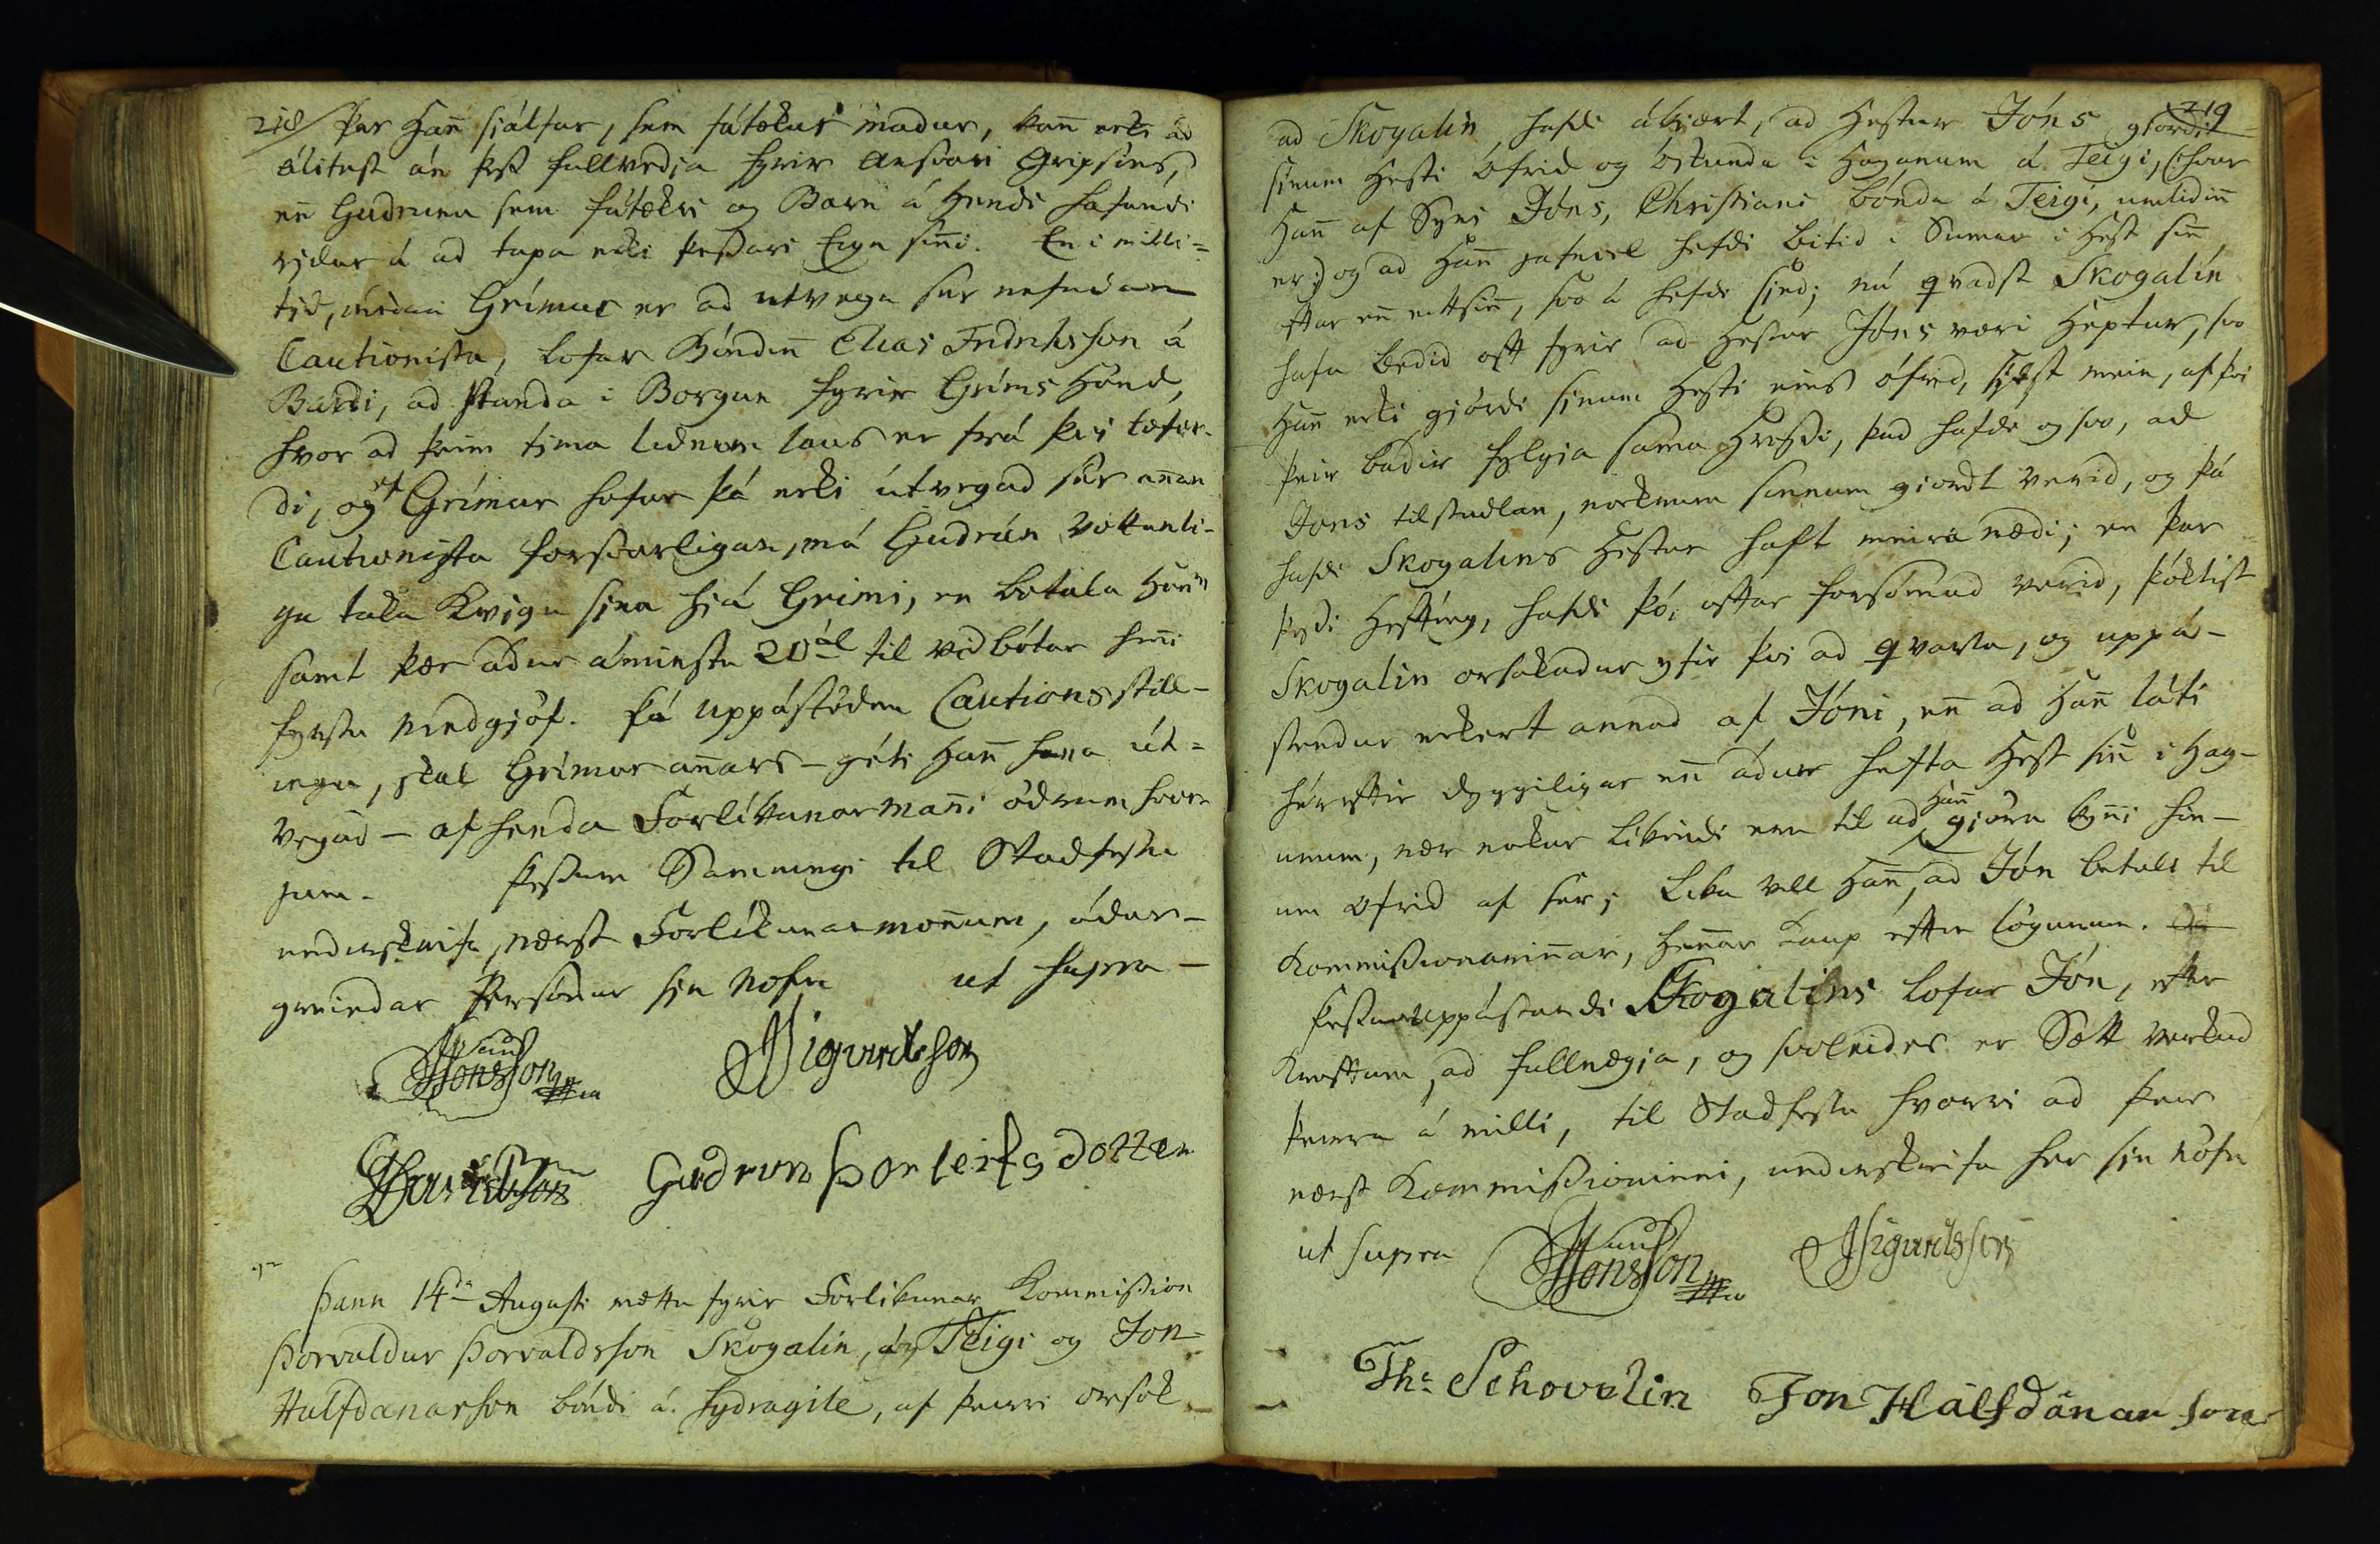 218/ þar Hañ sjálfur, sem fátækur madur, kañ ecki ad
álitast án þess fullvedja fyrir Ansvari Gripsins,
eñ Gudrunu sem fátækri og Barn á Hendi hafandi
rídur á ad tapa ecki þessari Eign siñi. En i milli-
tíd, medan Grímur er ad utvega sér nefndann
Cautionista, lofar Bóndiñ Elias Fridriksson á
Bardi, ad standa i Borgun fyrir Gríms Hönd,
hvor ad þeim tíma lidnum laus er frá þvi lofor-
di, og ef Grímur hefur þá ecki útvegad sér añan
Cautionista forsvarligan, má Gudrún Vottanli-
ga taka Kvígu sína hjá Grími, en betala Hönum
samt þær adur áminstu 20 ál til vidbótar heñi
fyrstu medgjöf. Þá uppástödnu Cautions still-
ingu, skal Grímur añars - géti Hañ hana út-
vegad - afhenda Forlíkunarmañi ödrum hvor-
jum. Þessum Samningi til Stadfestu
underskrifa, næst Forlíkunarmoñum, ádur-
greindar Persónur sín Nöfn ut supra -
JJonsson JSigurdsson
GDavidsson Gudrun Þorleifsdotter
Þann 14da Augusti mættu fyrir Forlikunar Kommission
Þorvaldur Þorvaldsson Skogalin, á Teigi og Jon
Halfdanarson bóndi á Sydragile, af þeirri orsök
219
ad Skogalin hafdi ákjært, ad Hestur Jóns giordi
sínum Hesti Ófrid og Óskunda i Haganum á Teigi, (: hvar
Hañ af Syni Jóns, Christiani bónda á Teigi, umlidiñ
er:) og ad Hañ jafnvel hefdi bitid i Sumar i Hest siñ
oftar eñ eittsiñ, svo á hefdi sied; nú qvadst Skogalin
hafa bedid oft fyrir ad Hestur Jóns væri Heptur, svo
Hañ ecki gjördi sinum Hesti neinn ófrid, sídst mein, af þvi
þeir badir fylgja sama Hrossi, þad hafdi og svo, ad
Jons tilstudlan, nockrum sinnum giordt verid, og þá
hafdi Skogalins Hestur haft meira nædi; en þar
þessi Hefting, hafdi þó, oftar forsömud verid, þóktist
Skogalin orsakadur yfir þvi ad qvarta, og uppá-
stendur eckert annad af Jóni, eñ ad Hañ láti
héreftir dyggiligar eñ adur hefta Hest siñ i Hag-
anum, nær nokur likindi eru til ad Hañ gjöra kyñi hin-
um Ofrid af ser; Lika vill Hañ, ad Jón betali til
Kommissionariñar, heñar Kaup eftir lögunum.
Þessari uppástandi Skogalins lofar Jón, eftir
Kröftum, ad fullnægja, og svoleidis er Sætt verkud
þeirra á milli, til Stadfestu hvorri ad þeir
næst Kommissioninni, underskrifa her sín nöfn
ut supra JJonsson JSigurdsson
Th: Schovelin Jon Hálfdánarson